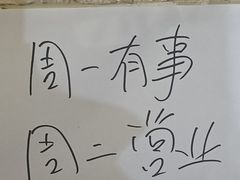 周一有事
周二营业